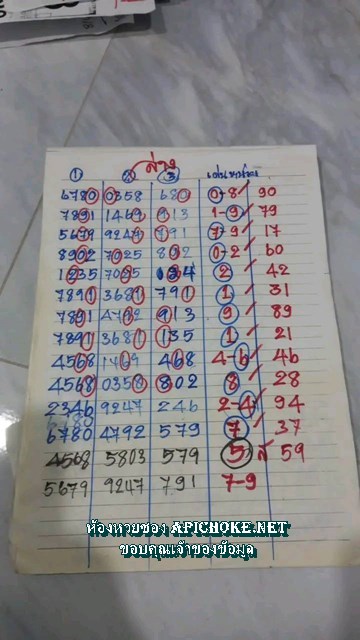 ล่าง
1 2 3 เด่นบนล่าง
6780 0358 680 0-8 90
7891 1469 913 1-9 79
5679 9247 791 7-9 17
8902 7025 802 0-2 60
1235 7025 134 2 42
7891 3681 791 1 31
7891 4792 913 9 89
7891 3681 135 1 21
4568 1469 468 4-6 46
4568 0358 802 8 28
2346 9247 246 2-4 94
6780 4792 579 7 37
4568 5803 579 5 ส 59
5679 9247 791 7-9
ห้องหวยซอง APICHOKE.NET
ขอบคุณเจ้าของข้อมูล